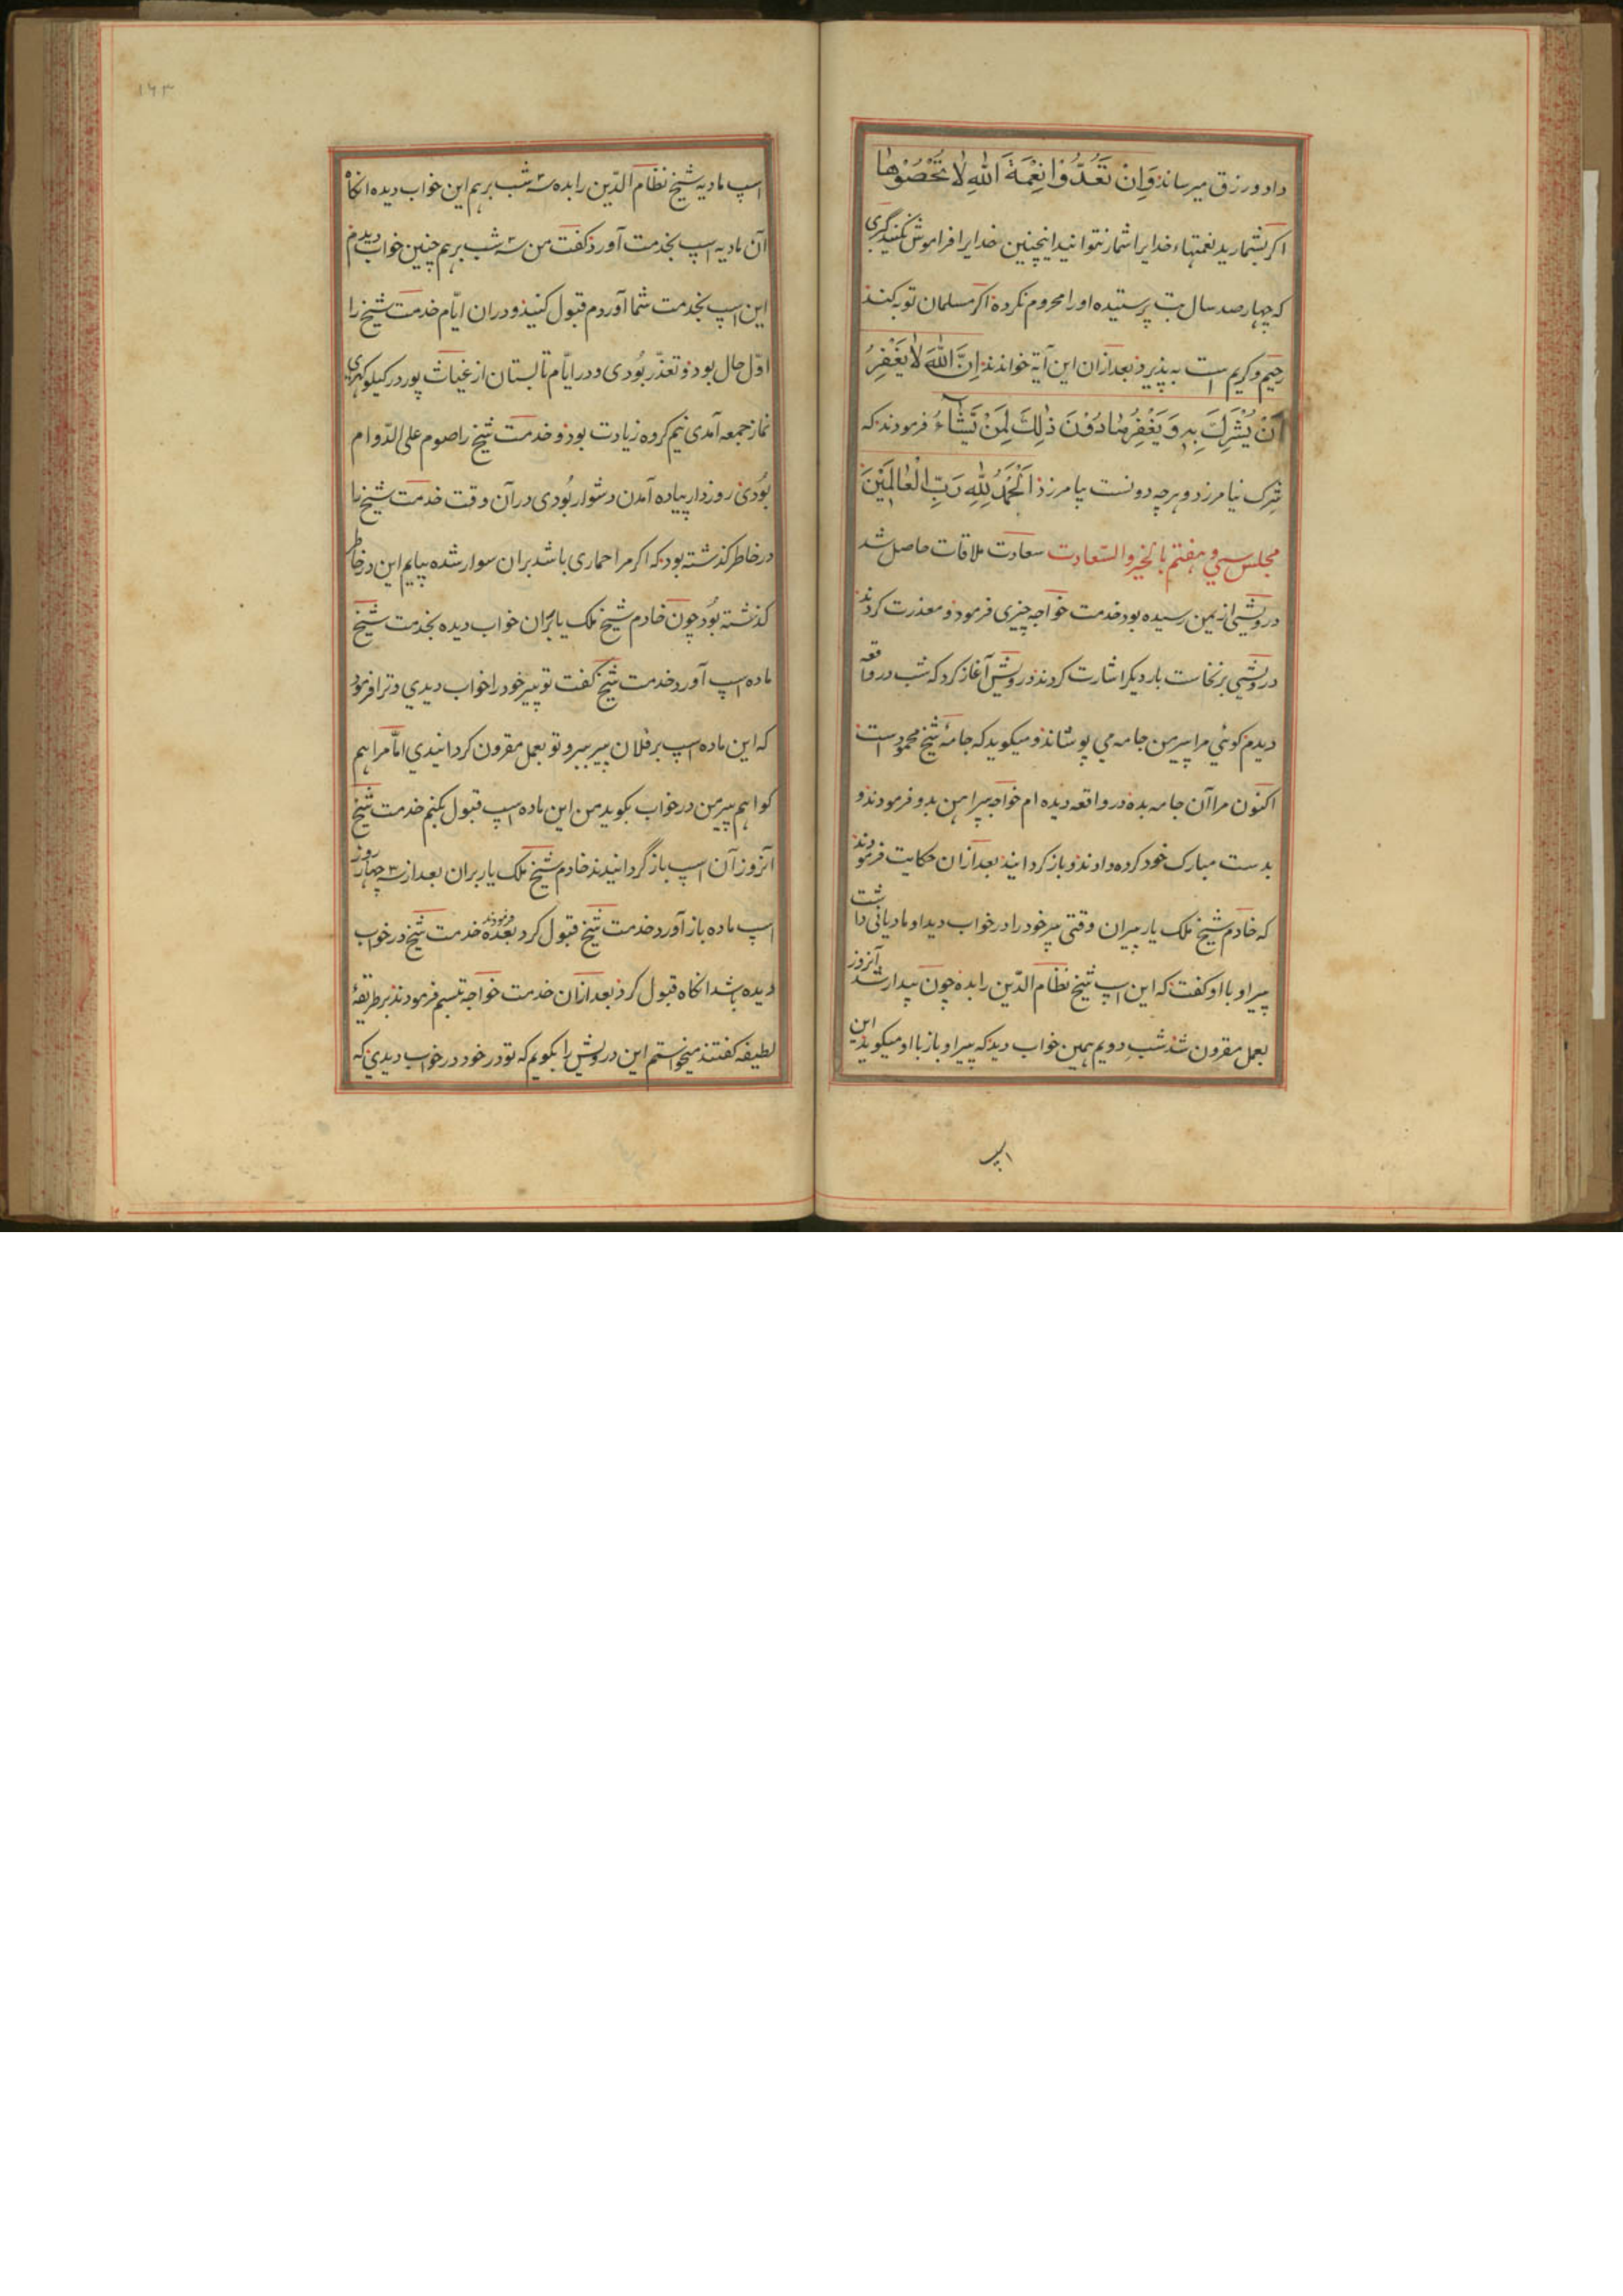 داد و رزق میرساند وَاِنْ تَعُدُّوْا نِعْمَةَ اللهِ لَا تُحْصُوْهَا
اکر بشمارید نعمتهاء خدایرا شمار نتوانید اینچنین خدایرا فراموش نکنید کبری
که چهار صد سال بت پرستیده او را محروم نکرده اکر مسلمان توبه کند
رحیم و کریم است به پذیرد بعد ازان این آیة خواندند اِنَّ اللهَ لَا يَغْفِرُ
اَنْ يُشْرَكَ بِهِ وَيَغْفِرُ مَا دُوْنَ ذٰلِكَ لِمَنْ يَّشَاءُ فرمودند که
شرک نیامرزد و هر چه دونست بیامرزد اَلْحَمْدُ لِلّٰهِ رَبِّ الْعَالَمِيْنَ
مجلس سی و هفتم بالخیر والسّعادت سعادت ملاقات حاصل شد
درویشی از یمن رسیده بود خدمت خواجه چیزی فرمود و معذرت کردند
درویشی برنخاست بار دیکر اشارت کردند درویش آغاز کرد که شب در واقعه
دیدم کوئی مرا پیر من جامه می پوشاند و میکوید که جامهٔ شیخ محمود است
اکنون مرا آن جامه بده در واقعه دیده ام خواجه پیراهن بدو فرمودند و
بدست مبارک خود کرده دادند و باز کردانیند بعد ازان حکایت فرمودند
که خادم شیخ ملک یار پیران وقتی پیر خود را در خواب دید او مادیانی داشت
پیر او با او کفت که این اسپ شیخ نظام الدّین را بده چون بیدار شد آنروز
بعمل مقرون نشد شب دویم همین خواب دید که پیر او باز با او میکوید این
اسپ
۱۶۳
اسپ مادیه شیخ نظام الدّین را بده سه شب برهم این خواب دیده انکاه
آن مادیه اسپ بخدمت آورد کفت من سه شب برهم چنین خواب دیدم
این اسپ بخدمت شما آوردم قبول کنید و دران ایّام خدمت شیخ را
اوّل حال بود و تعذّر بُودی و در ایّام تابستان از غیاث پور در کیلوکهری
نماز جمعه آمدی نیم کروه زیادت بود و خدمت شیخ را صوم علی الدّوام
بُودی روزدار پیاده آمدن دشوار بُودی در آن وقت خدمت شیخ را
در خاطر کذشته بود که اکر مرا حماری باشد بران سوار شده بیایم این در خاطر
کذشته بُود چون خادم شیخ ملک یار پران خواب دیده بخدمت شیخ
ماده اسپ آورد خدمت شیخ کفت تو پیر خود را خواب دیدی و ترا فرمود
که این ماده اسپ بر فلان پیر ببر و تو بعمل مقرون کردانیدی امّا مرا هم
کو اهم پیر من در خواب بکوید من این ماده اسپ قبول بکنم خدمت شیخ
آنروز آن اسپ باز گردانیدند خادم شیخ ملک یار پران بعد از سه چهار روز
اسپ ماده باز آورد خدمت شیخ قبول کرد بعده فرمودند خدمت شیخ در خواب
دیده باشد انکاه قبول کرد بعد ازان خدمت خواجه تبسم فرمودند بر طریقهٔ
لطیفه کفتند میخواستم این درویش را بکویم که تو در خود در خواب دیدی که